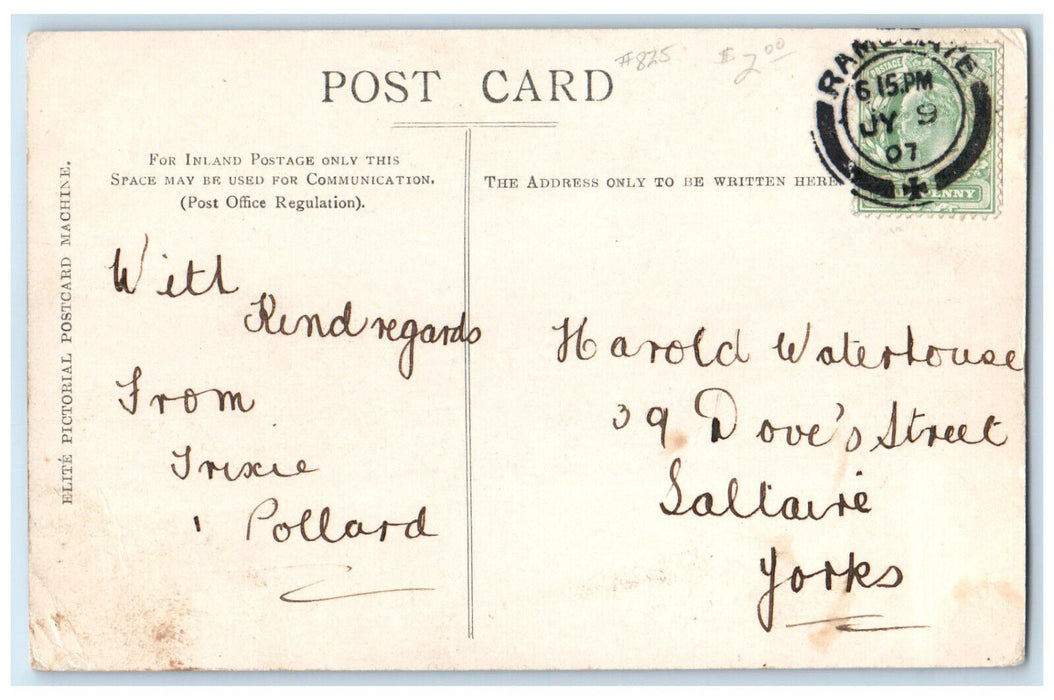 #825
$2.00
POST CARD
RAMSGATE
6 15.PM
JY 9
07
POSTAGE
PENNY
ELITÉ PICTORIAL POSTCARD MACHINE.
FOR INLAND POSTAGE ONLY THIS
SPACE MAY BE USED FOR COMMUNICATION.
(Post Office Regulation).
THE ADDRESS ONLY TO BE WRITTEN HERE
With
Kind regards
From
Trixie
Pollard
Harold Waterhouse
39 Dove's Street
Saltaire
Yorks